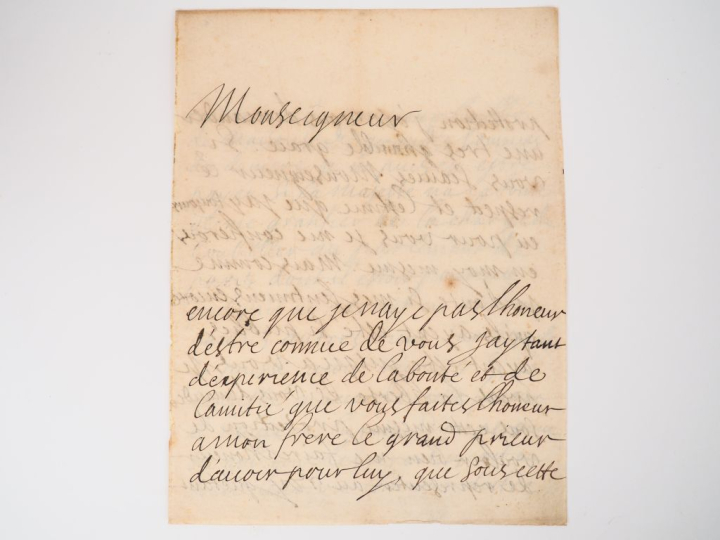 Monseigneur
encore que je naye pas lhoneur
destre connue de vous jay tant
dexperience de la bonté et de
lamitié que vous faites lhoneur
a mon frere le grand prieur
davoir pour luy, que sous cette